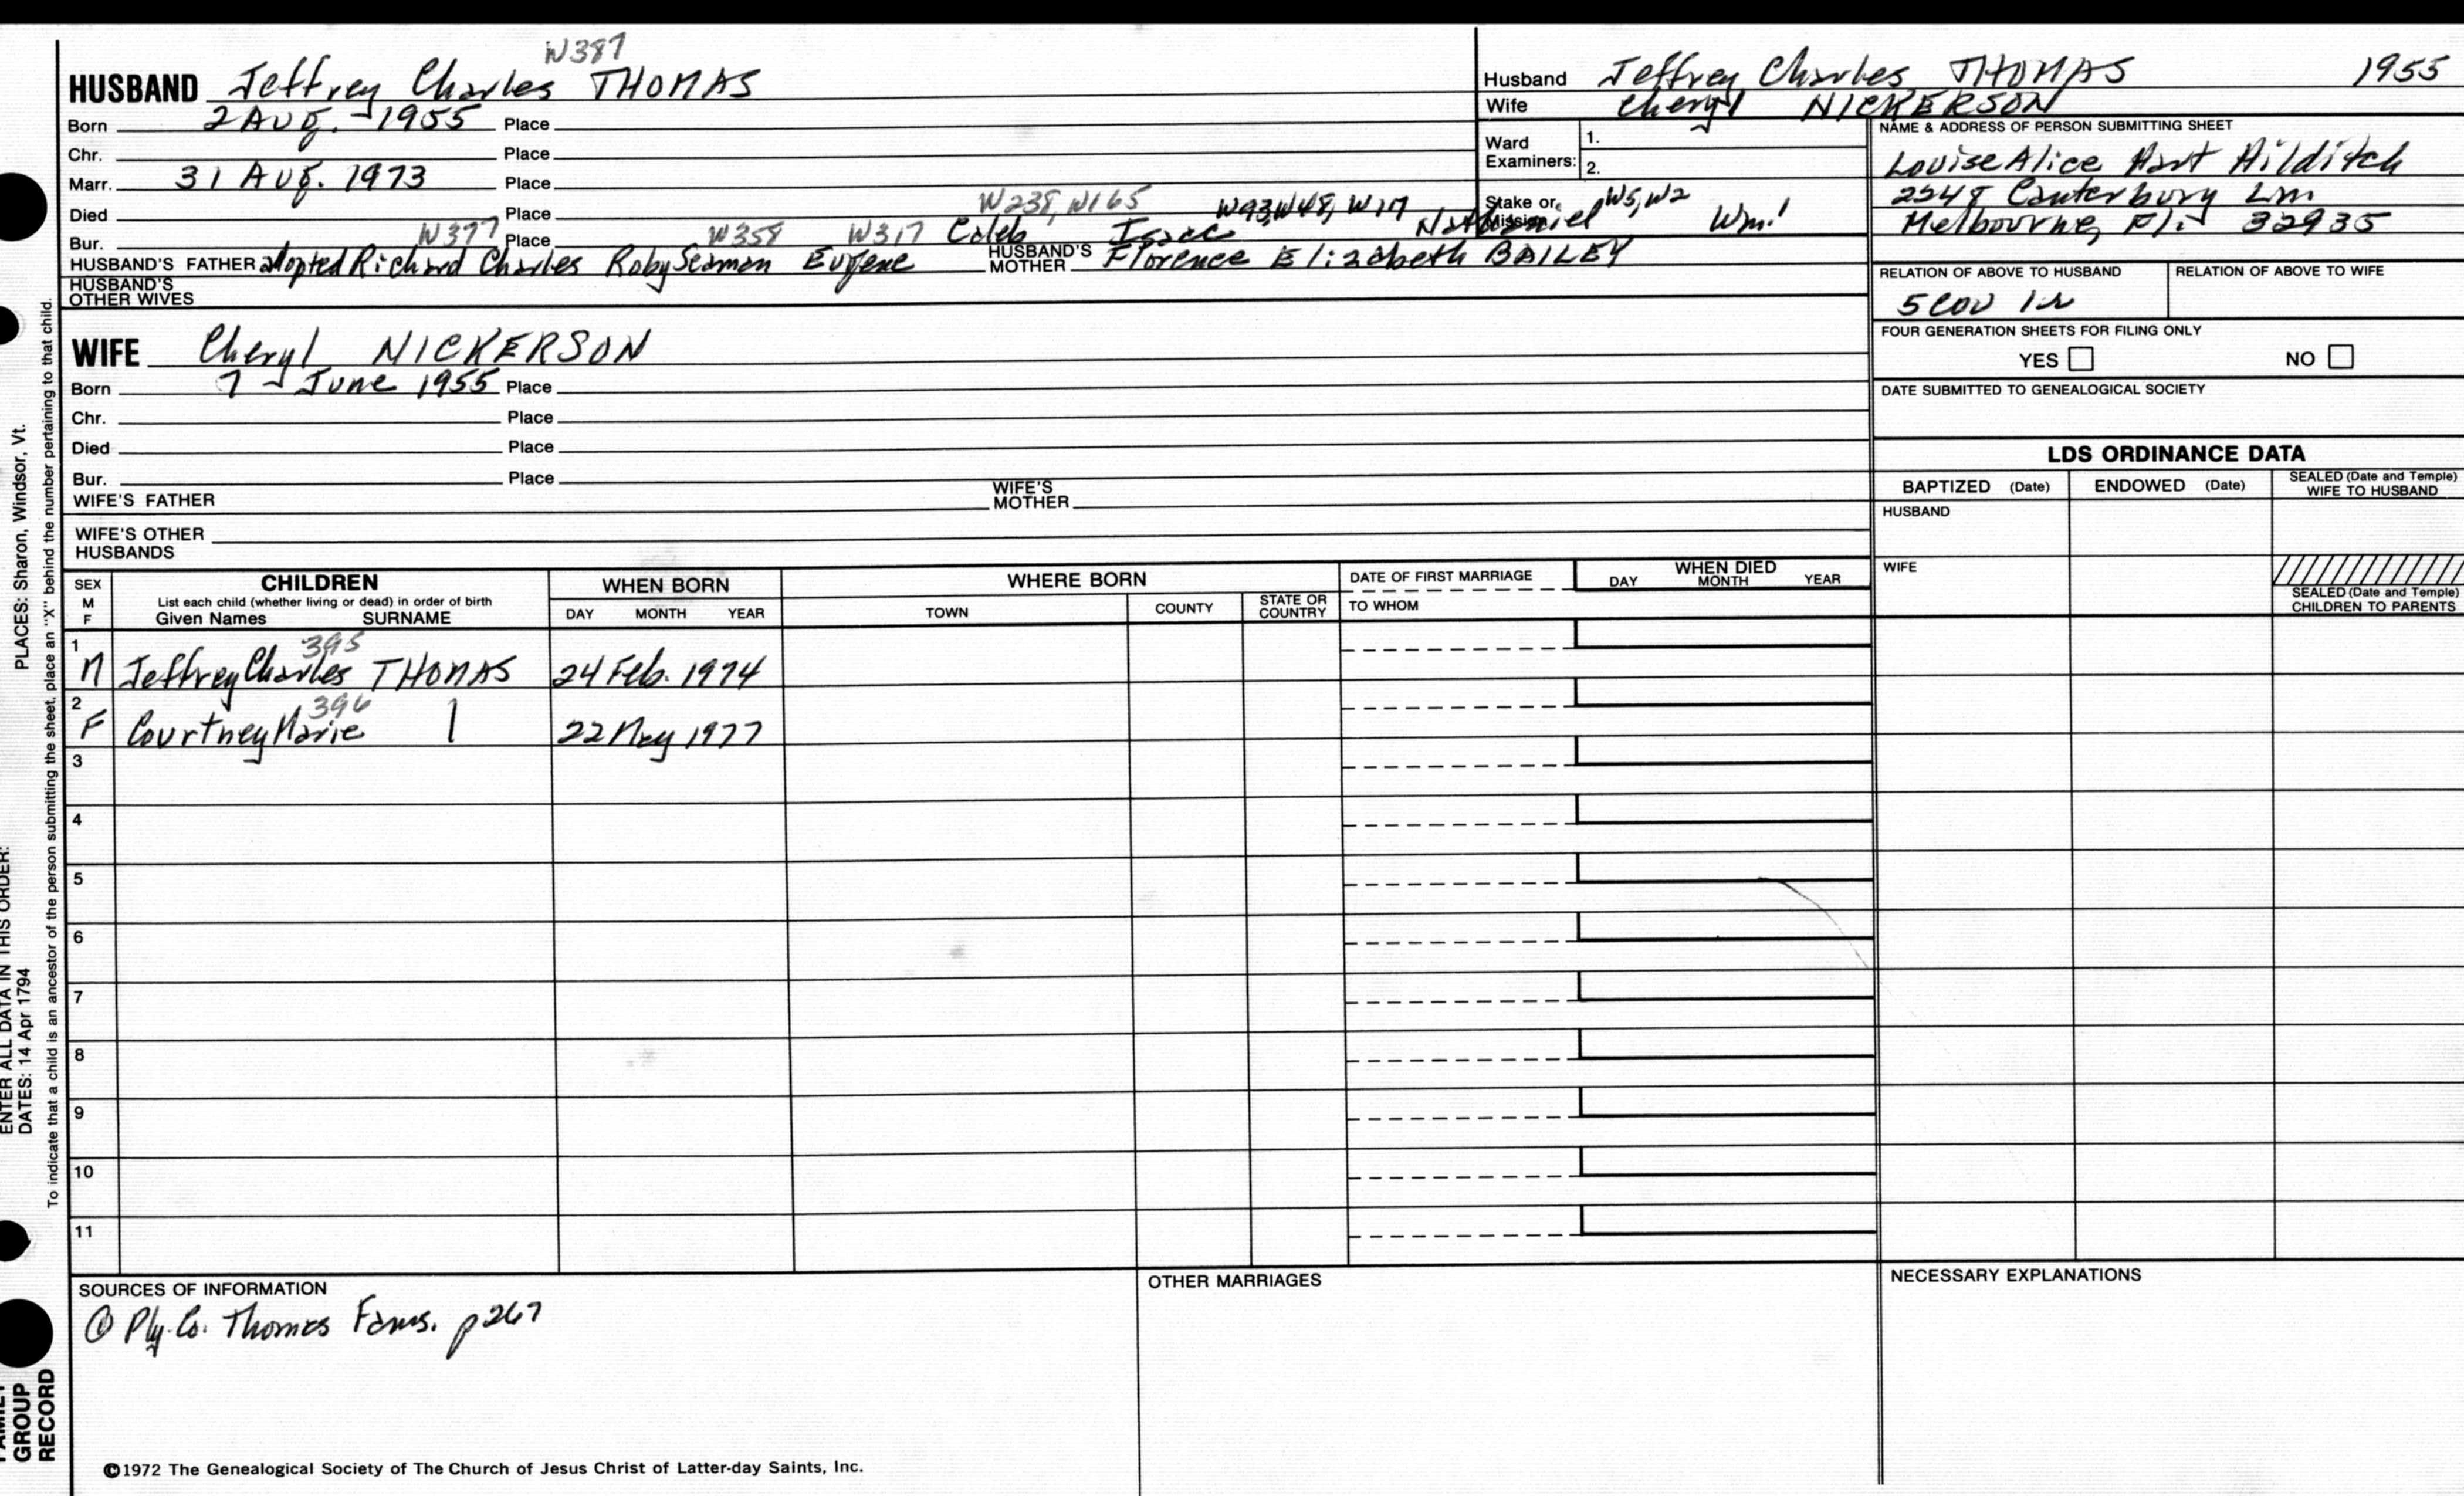 W387
HUSBAND Jeffrey Charles THOMAS
Born 2 Aug. 1955 Place
Chr. Place
Marr. 31 Aug. 1973 Place
Died Place
W238, W165 W93, W48, W17 W5, W2
Bur. Place
W397 W358 W317 Caleb Isaac Nathaniel Wm.1
HUSBAND'S FATHER adopted Richard Charles Roby Seaman Eugene HUSBAND'S MOTHER Florence Elizabeth BAILEY
HUSBAND'S OTHER WIVES
WIFE Cheryl NICKERSON
Born 7 June 1955 Place
Chr. Place
Died Place
Bur. Place
WIFE'S FATHER WIFE'S MOTHER
WIFE'S OTHER HUSBANDS
Husband Jeffrey Charles THOMAS 1955
Wife Cheryl NICKERSON
Ward Examiners: 1.
2.
Stake or Mission
NAME & ADDRESS OF PERSON SUBMITTING SHEET
Louise Alice Hart Hilditch
Canterbury Ln
Melbourne, Fl. 32935
RELATION OF ABOVE TO HUSBAND RELATION OF ABOVE TO WIFE
5 cou 1r
FOUR GENERATION SHEETS FOR FILING ONLY
YES NO
DATE SUBMITTED TO GENEALOGICAL SOCIETY
LDS ORDINANCE DATA
BAPTIZED (Date) ENDOWED (Date) SEALED (Date and Temple) WIFE TO HUSBAND
HUSBAND
WIFE
SEALED (Date and Temple) CHILDREN TO PARENTS
SEX M F
CHILDREN
List each child (whether living or dead) in order of birth
Given Names SURNAME
WHEN BORN
DAY MONTH YEAR
WHERE BORN
TOWN COUNTY STATE OR COUNTRY
DATE OF FIRST MARRIAGE
TO WHOM
WHEN DIED
DAY MONTH YEAR
395
1 M Jeffrey Charles THOMAS 24 Feb. 1974
396
2 F Courtney Marie 22 May 1977
3
4
5
6
7
8
9
10
11
SOURCES OF INFORMATION
① Ply. Co. Thomas Fams. p267
OTHER MARRIAGES
NECESSARY EXPLANATIONS
©1972 The Genealogical Society of The Church of Jesus Christ of Latter-day Saints, Inc.
PLACES: Sharon, Windsor, Vt.
To indicate that a child is an ancestor of the person submitting the sheet, place an "X" behind the number pertaining to that child.
ENTER ALL DATA IN THIS ORDER:
DATES: 14 Apr 1794
FAMILY GROUP RECORD